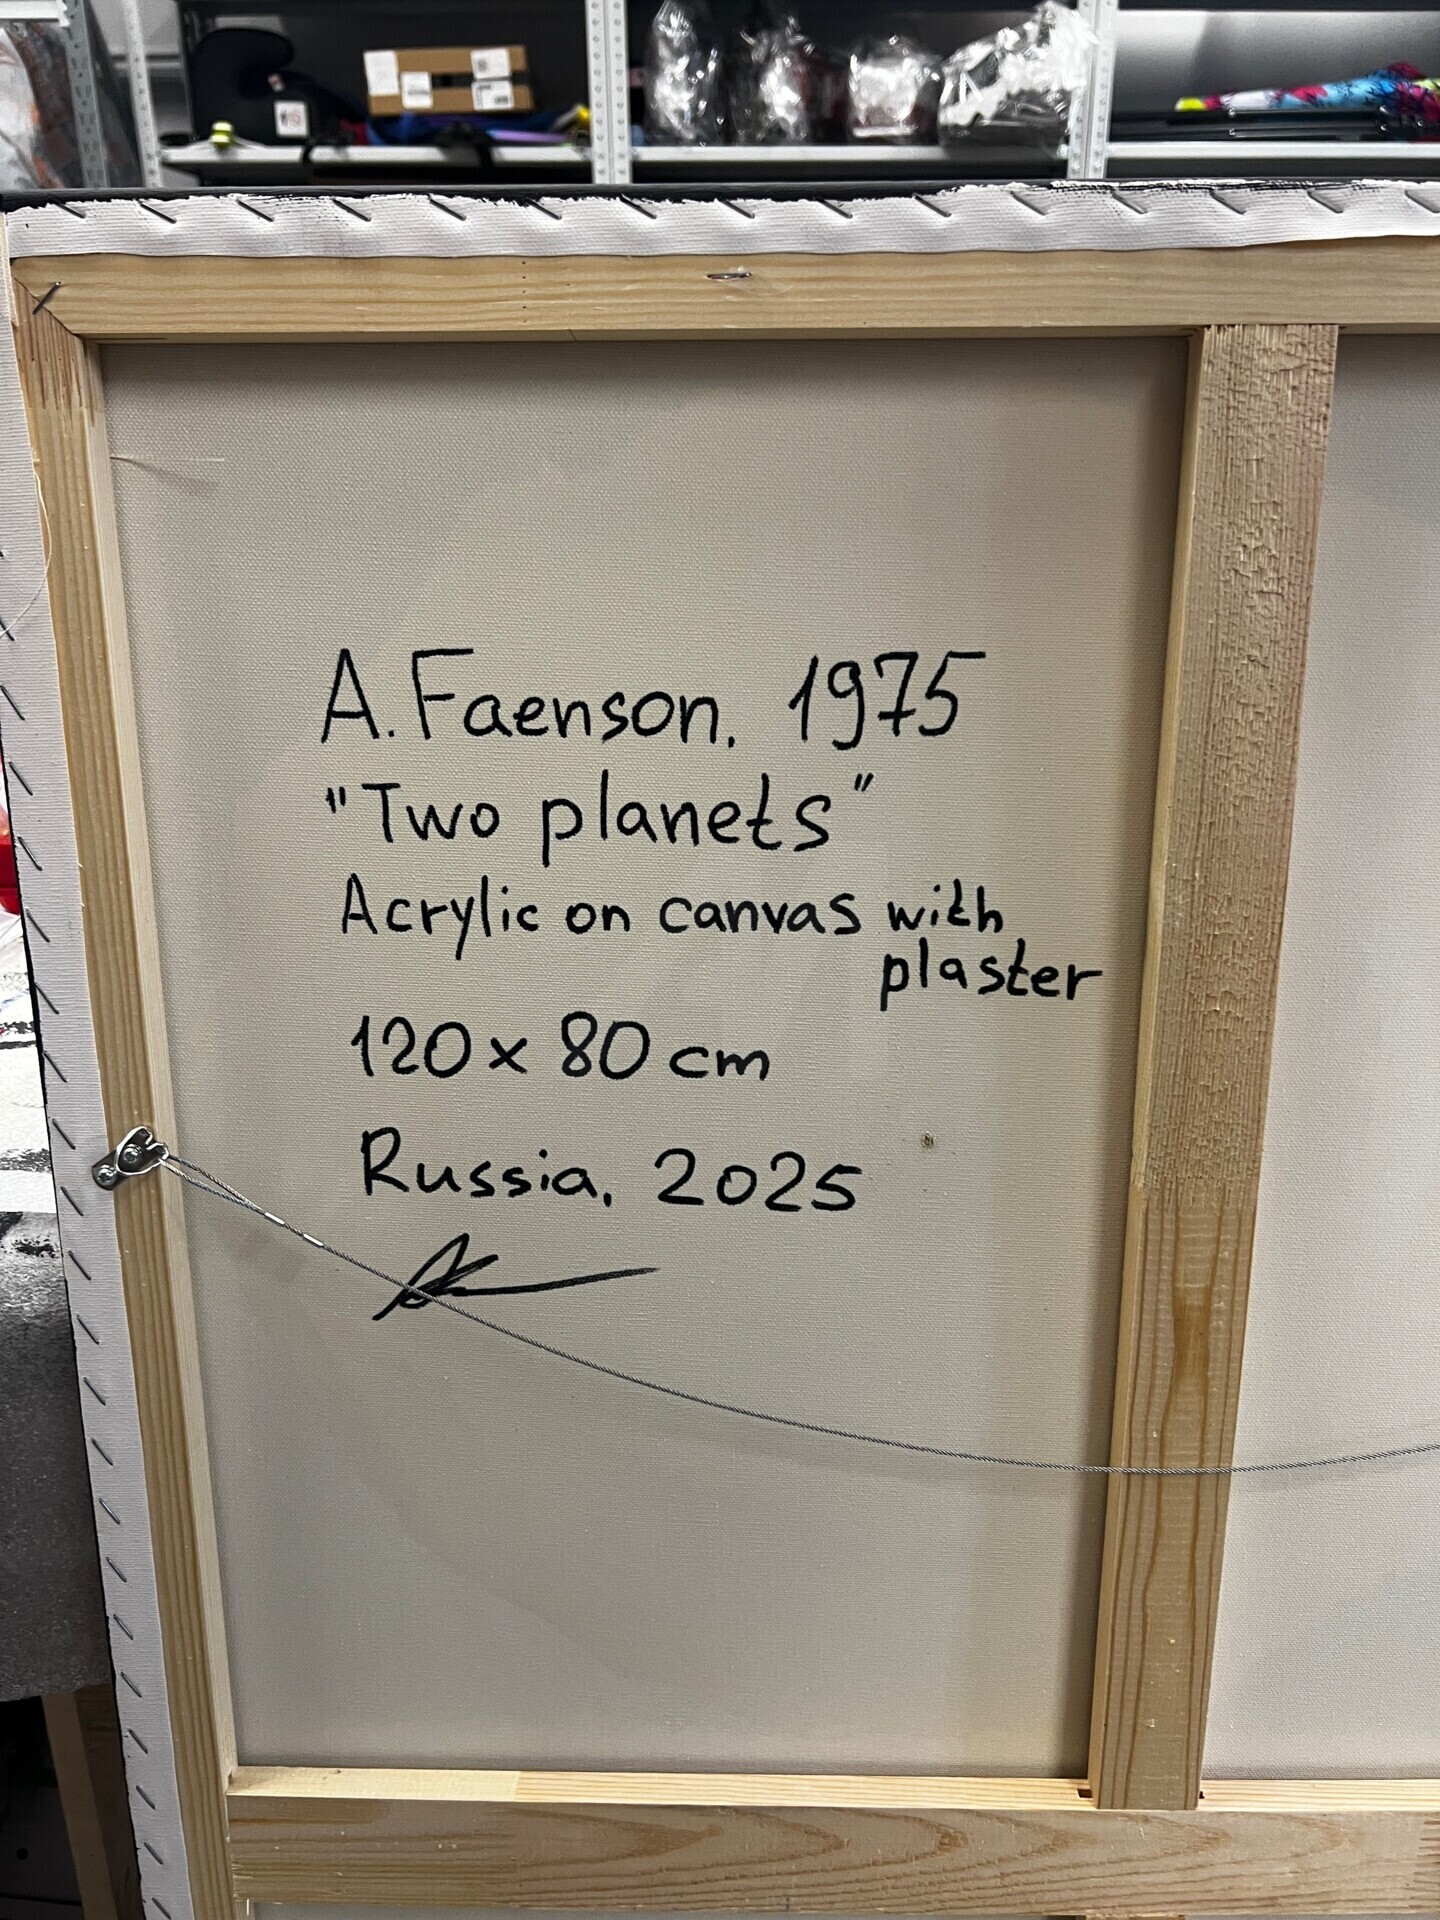 A. Faenson, 1975
"Two planets"
Acrylic on canvas with
plaster
120 x 80 cm
Russia, 2025